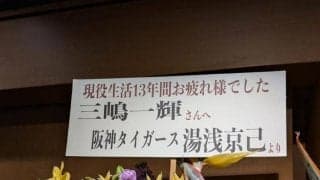 現役生活13年間お疲れ様でした
三嶋一輝さんへ
阪神タイガース 湯浅京己より